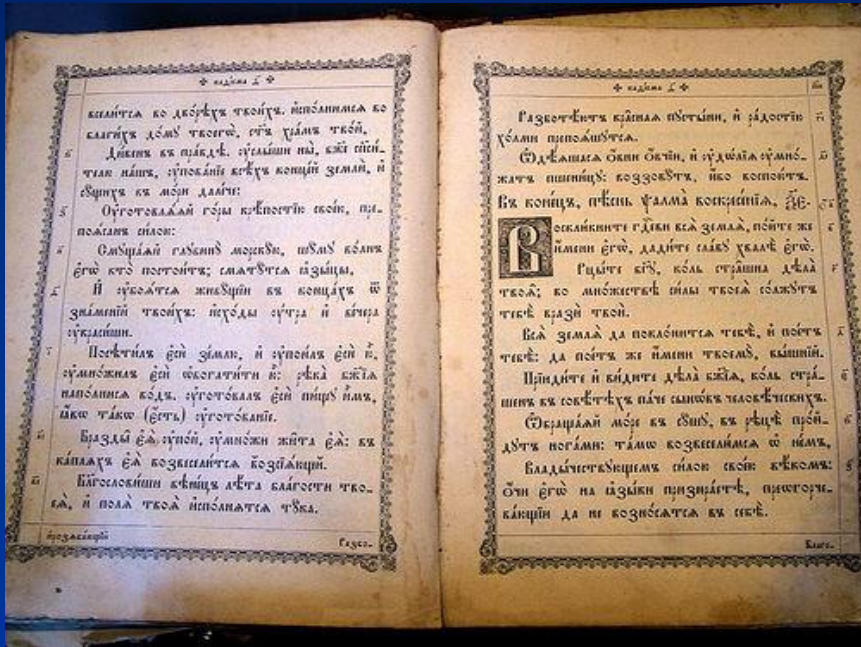 каѳісма
вселитсѧ во дворѣхъ твоихъ. исполнимсѧ во
благихъ дому твоегѡ, ст҃ъ храмъ твой,
Дивенъ въ правдѣ. ᲂуслыши ны, бж҃е сп҃си-
телю нашъ, ᲂупованіе всѣхъ концей земли, и
сущихъ въ мори далече:
Оуготовлѧѧй горы крѣпостію своею, пре-
поѧсанъ силою:
Смущаѧй глубину морскую, шуму волнъ
егѡ кто постоитъ; смѧтутсѧ ꙗзыцы,
И ᲂубоѧтсѧ живущіи въ концахъ ѿ
знаменій твоихъ: исходы ᲂутра и вечера
ᲂукрасиши.
Посѣтилъ еси землю, и ᲂупоилъ еси ю,
ᲂумножилъ еси ѡбогатити ю: рѣка бж҃іѧ
наполнисѧ водъ. ᲂуготовалъ еси пищу имъ,
ꙗкѡ такѡ (есть) ᲂуготованіе.
Бразды еѧ ᲂупой, ᲂумножи жита еѧ: въ
каплѧхъ еѧ возвеселитсѧ возсіѧющи.
Благословиши вѣнецъ лѣта благости тво-
еѧ, и полѧ твоѧ исполнѧтсѧ тука.
Разбо-
каѳісма
Разботѣютъ краснаѧ пустыни, и радостію
холми препоѧшутсѧ.
Ѡдѣѧшасѧ ѻвни ѻвчіи, и ᲂудѡліѧ ᲂумно-
жатъ пшеницу: воззовутъ, ибо воспоютъ.
Въ конецъ, пѣснь ѱалма воскресеніѧ, ѯ҃е.
Воскликните гд҃еви всѧ землѧ, пойте же
имени егѡ, дадите славу хвалѣ егѡ.
Рцыте бг҃у, коль страшна дѣла
твоѧ; во множествѣ силы твоеѧ солжутъ
тебѣ врази твои.
Всѧ землѧ да поклонитсѧ тебѣ, и поетъ
тебѣ: да поетъ же имени твоему, вышній.
Пріидите и видите дѣла бж҃іѧ, коль стра-
шенъ въ совѣтѣхъ паче сынѡвъ человѣческихъ.
Ѡбращаѧй море въ сушу, въ рѣцѣ прой-
дутъ ногами: тамѡ возвеселимсѧ ѡ немъ,
Владычествующемъ силою своею вѣкомъ:
ѻчи егѡ на ꙗзыки призираетѣ, преѡгорче-
вающіи да не возносѧтсѧ въ себѣ.
Благо-